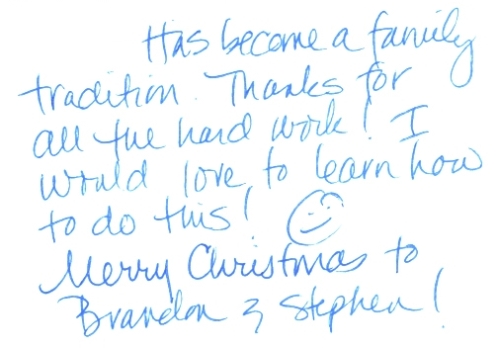 Has become a family
tradition. Thanks for
all the hard work! I
would love to learn how
to do this!
Merry Christmas to
Brandon & Stephen!